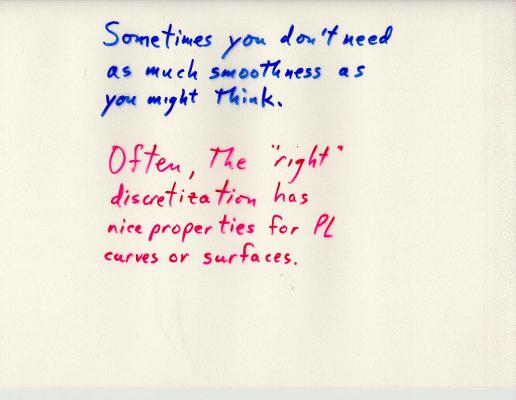 Sometimes you don't need
as much smoothness as
you might think.
Often, the "right"
discretization has
nice properties for PL
curves or surfaces.